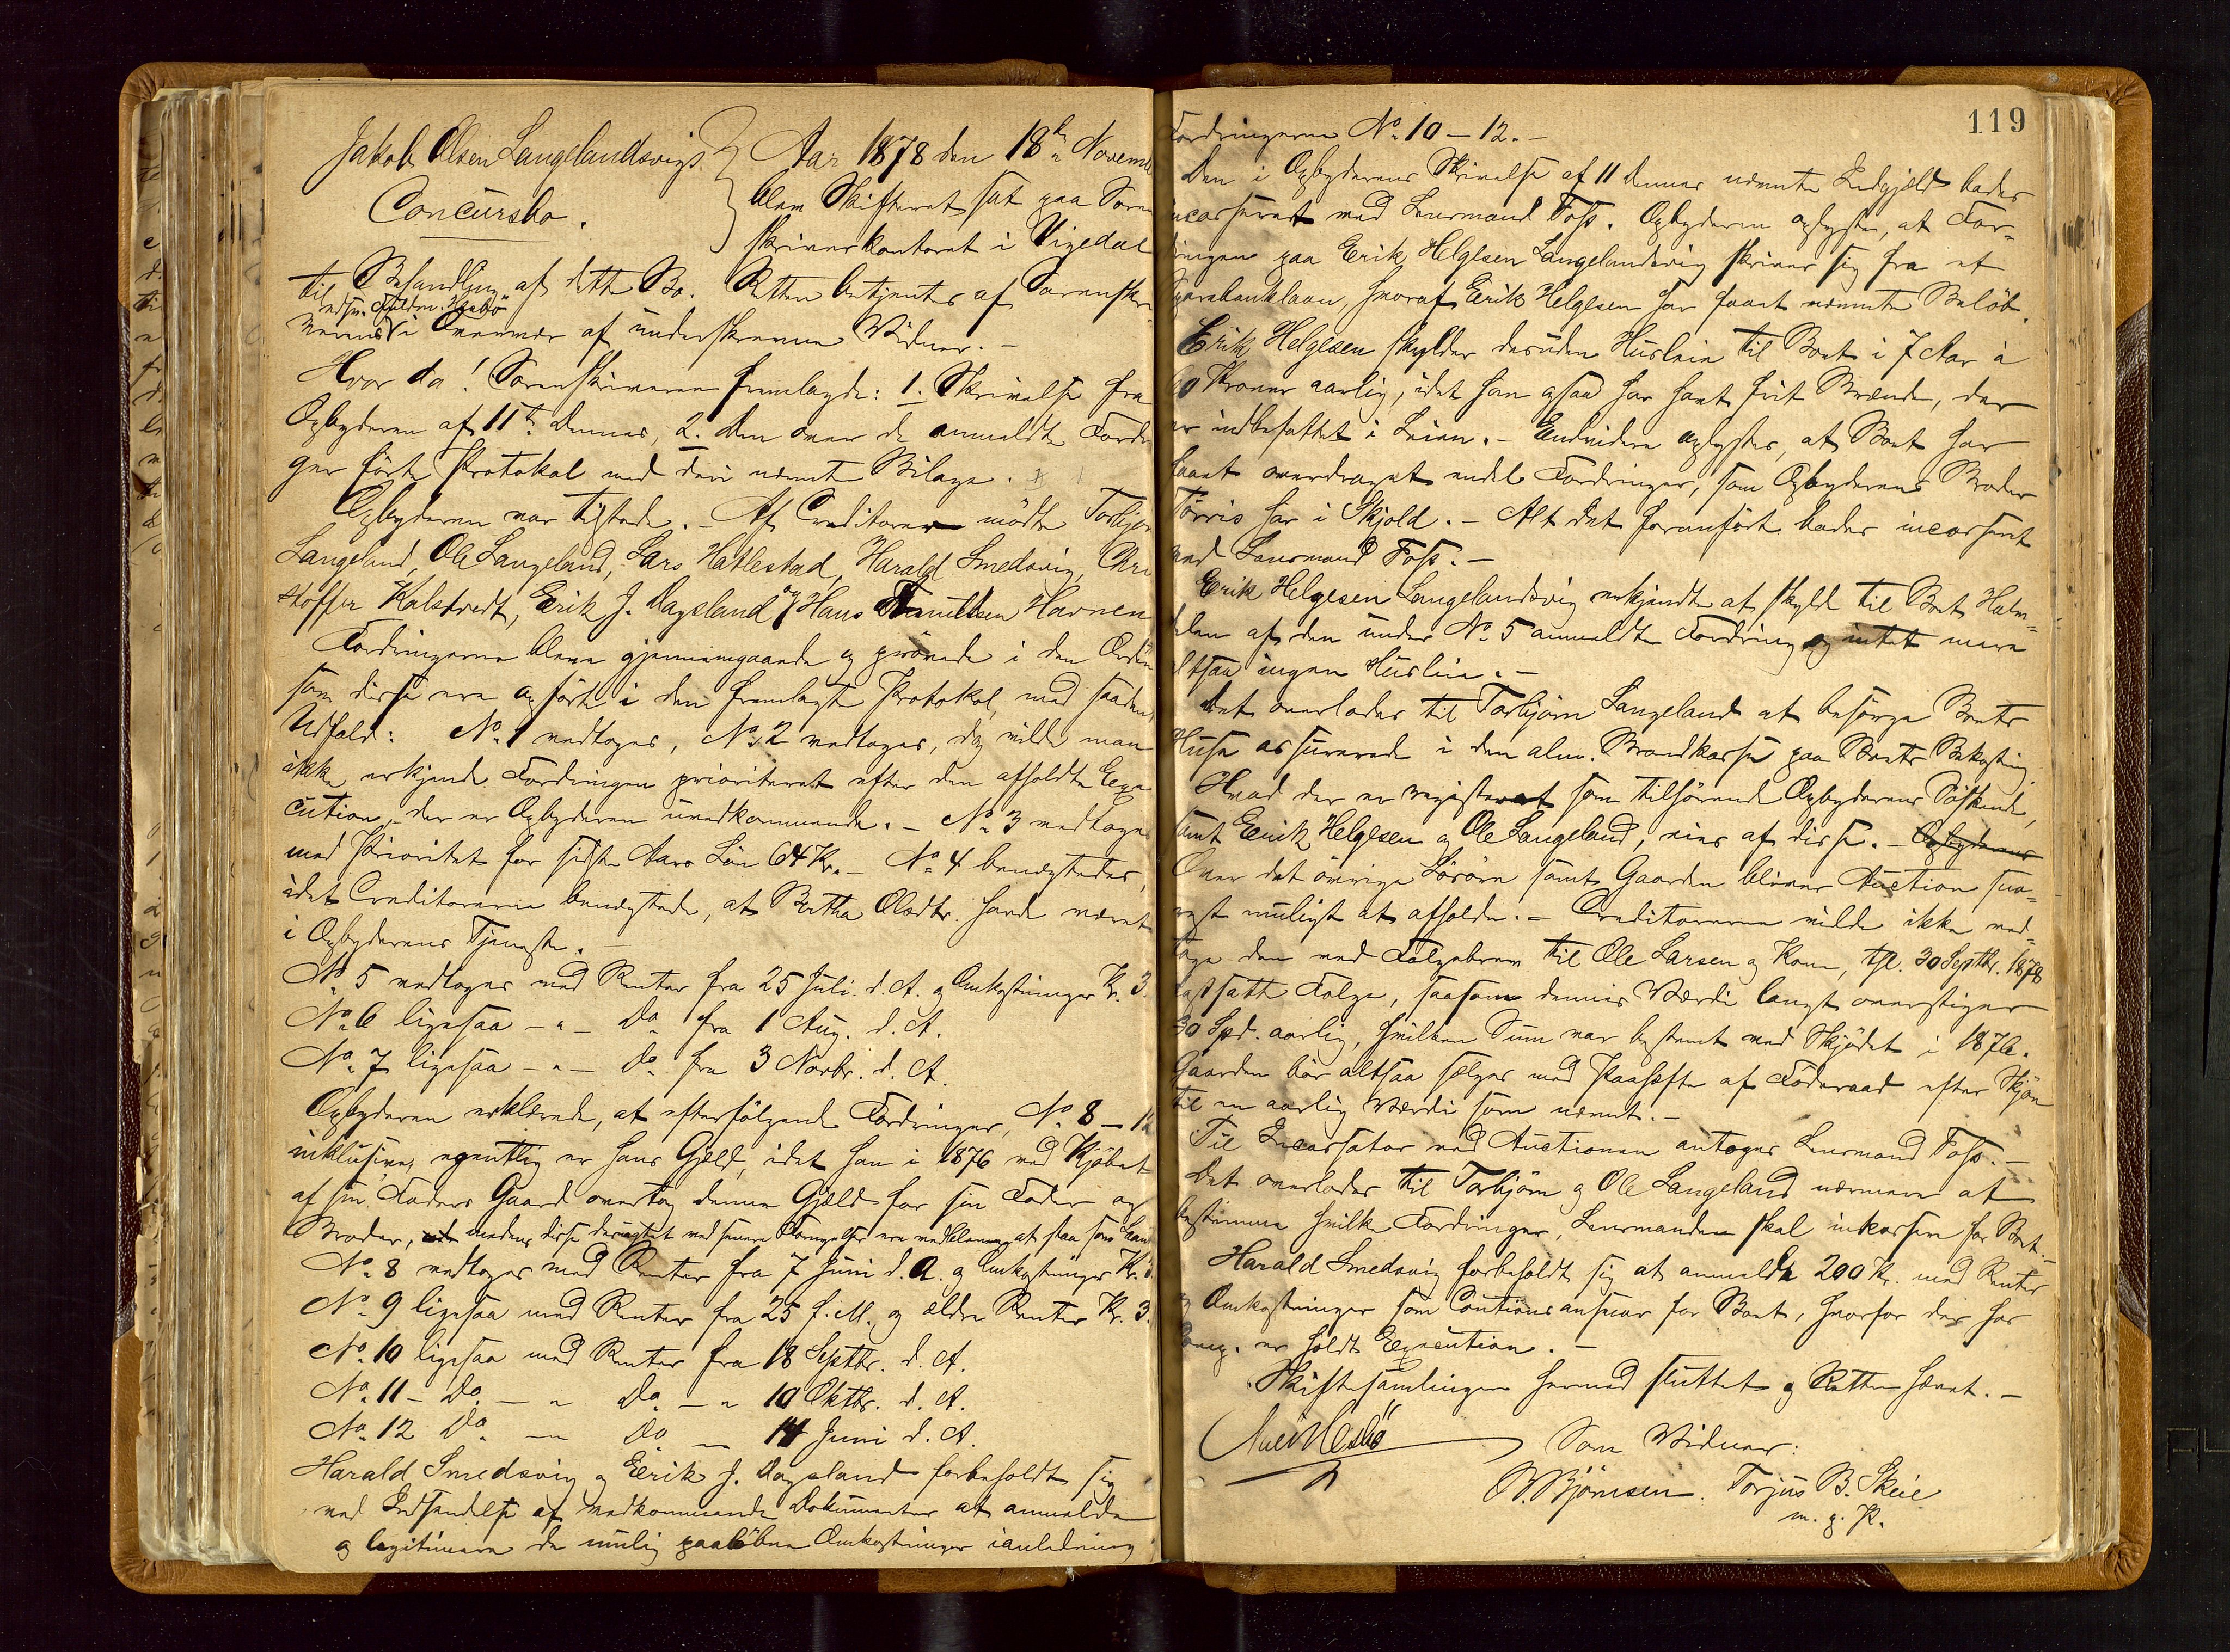 Jakob Olsen Langelandsvigs
Concursbo.
Aar 1878 den 18de Novemb
blev Skifteret sat paa Soren
skriverkontoret i Vigedal
til Behandling af dette Bo. Retten betjentes af Sorenskri
verens i Overvær af underskrevne Vidner. –
Hvor da! Sorenskriveren fremlagde: 1. Skrivelse fra
Opbyderen af 11te dennes, 2. den over de anmeldte Fordrin
ger førte Protokol med deri nævnt Bilage.
Opbyderen var tilstede. – Af Creditorer mødte Torbjørn
Langeland, Ole Langeland, Lars Hatlestad, Harald Smedsvig, Chri
stoffer Kalstvedt, Erik J. Dagsland og Hans Knudsen Havnen
Fordringerne bleve gjennemgaaede og prøvede i den Orden
som disse ere opførte i den fremlagte Protokol, med saadant
Udfald: No 1 vedtoges, No 2 vedtoges, dog vilde man
ikke erkjende Fordringen prioriteret efter den afholdte Exe
cution, der er Opbyderen uvedkommende. – No 3 vedtoges
med Prioritet for sidste Aars Løn 64 Kr. – No 4 benægtedes,
idet Creditorerne benægtede, at Bertha Olsdtr. havde været
i Opbyderens Tjeneste. –
No 5 vedtoges med Renter fra 25 Juli d. A. og Omkostninger Kr. 3.
No 6 ligesaa – " – Do fra 1 Aug. d. A.
No 7 ligesaa – " – Do fra 3 Novbr. d. A.
Opbyderen erklærede, at efterfølgende Fordringer, No 8 – 12
inklusive, egentlig er hans Gjæld, idet han i 1876 ved Kjøbet
af sin Faders Gaard overtog denne Gjæld for sin Fader og
Broder, medens disse desuagtet ved senere Fornyelser ere vedblevne at staa som
No 8 vedtoges med Renter fra 7 Juni d. A. og Omkostninger Kr.
No 9 ligesaa med Renter fra 25 f. M. og ældre Renter Kr. 3.
No 10 ligesaa med Renter fra 18 Septbr. d. A.
No 11 – Do – " Do – " 10 Oktbr. d. A.
No 12 Do – " Do – 14 Juni d. A.
Harald Smedsvig og Erik J. Dagsland forbeholdt sig
ved Indsendelse af vedkommende Dokumenter at anmelde
og legitimere de mulig paaløbne Omkostninger ianledning
119
Fordringerne No 10 – 12. –
Den i Opbyderens Skrivelse af 11 dennes nævnte Indgjæld bades
incasseret ved Lensmand Foss. Opbyderen oplyste, at For-
dringen paa Erik Helgesen Langelandsvig skriver sig fra et
Sparebanklaan, hvoraf Erik Helgesen har faaet nævnte Beløb.
Erik Helgesen skylder desuden Husleie til Boet i 7 Aar à
60 Kroner aarlig, idet han ogsaa har havt frit Brænde, der
er indbefattet i Leien. – Endvidere oplystes, at Boet har
faaet overdraget endel Fordringer, som Opbyderens Broder
Tørris har i Skjold. – Alt det foranførte bades incasseret
ved Lensmand Foss. –
Erik Helgesen Langelandsvig erkjendte at skylde til Boet Halv-
delen af den under No 5 anmeldte Fordring og intet mere
altsaa ingen Husleie. –
Det overlodes til Torbjørn Langeland at besørge Boets
Huse assurerede i den alm. Brandkasse paa Boets Bekostning.
Hvad der er registreret som tilhørende Opbyderens Søskende,
samt Erik Helgesen og Ole Langeland, eies af disse. – Opbyderens
Over det øvrige Løsøre samt Gaarden bliver Auction sna-
rest muligt at afholde. – Creditorerne vilde ikke ved-
tage den ved Folgebrev til Ole Larsen og Kone, tgl. 30 Septbr. 1878
fastsatte Folge, saasom dennes Værdi langt overstiger
30 Spd. aarlig, hvilken Sum var bestemt ved Skjødet i 1876.
Gaarden bør altsaa sælges med Paahefte af Føderaad efter Skjøn
til en aarlig Værdi som nævnt. –
Til Incassator ved Auctionen antoges Lensmand Foss. –
Det overlodes til Torbjørn og Ole Langeland nærmere at
bestemme hvilke Fordringer, Lensmanden skal inkassere for Boet. –
Harald Smedsvig forbeholdt sig at anmelde 200 Kr. med Renter
og Omkostninger som Cautionsansvar for Boet, hvorfor der hos
er holdt Execution. –
Skiftesamlingen hermed sluttet og Retten hævet. –
Som Vidner:
B. Bjørnsen. Torjus B. Skeie
m. p. P.